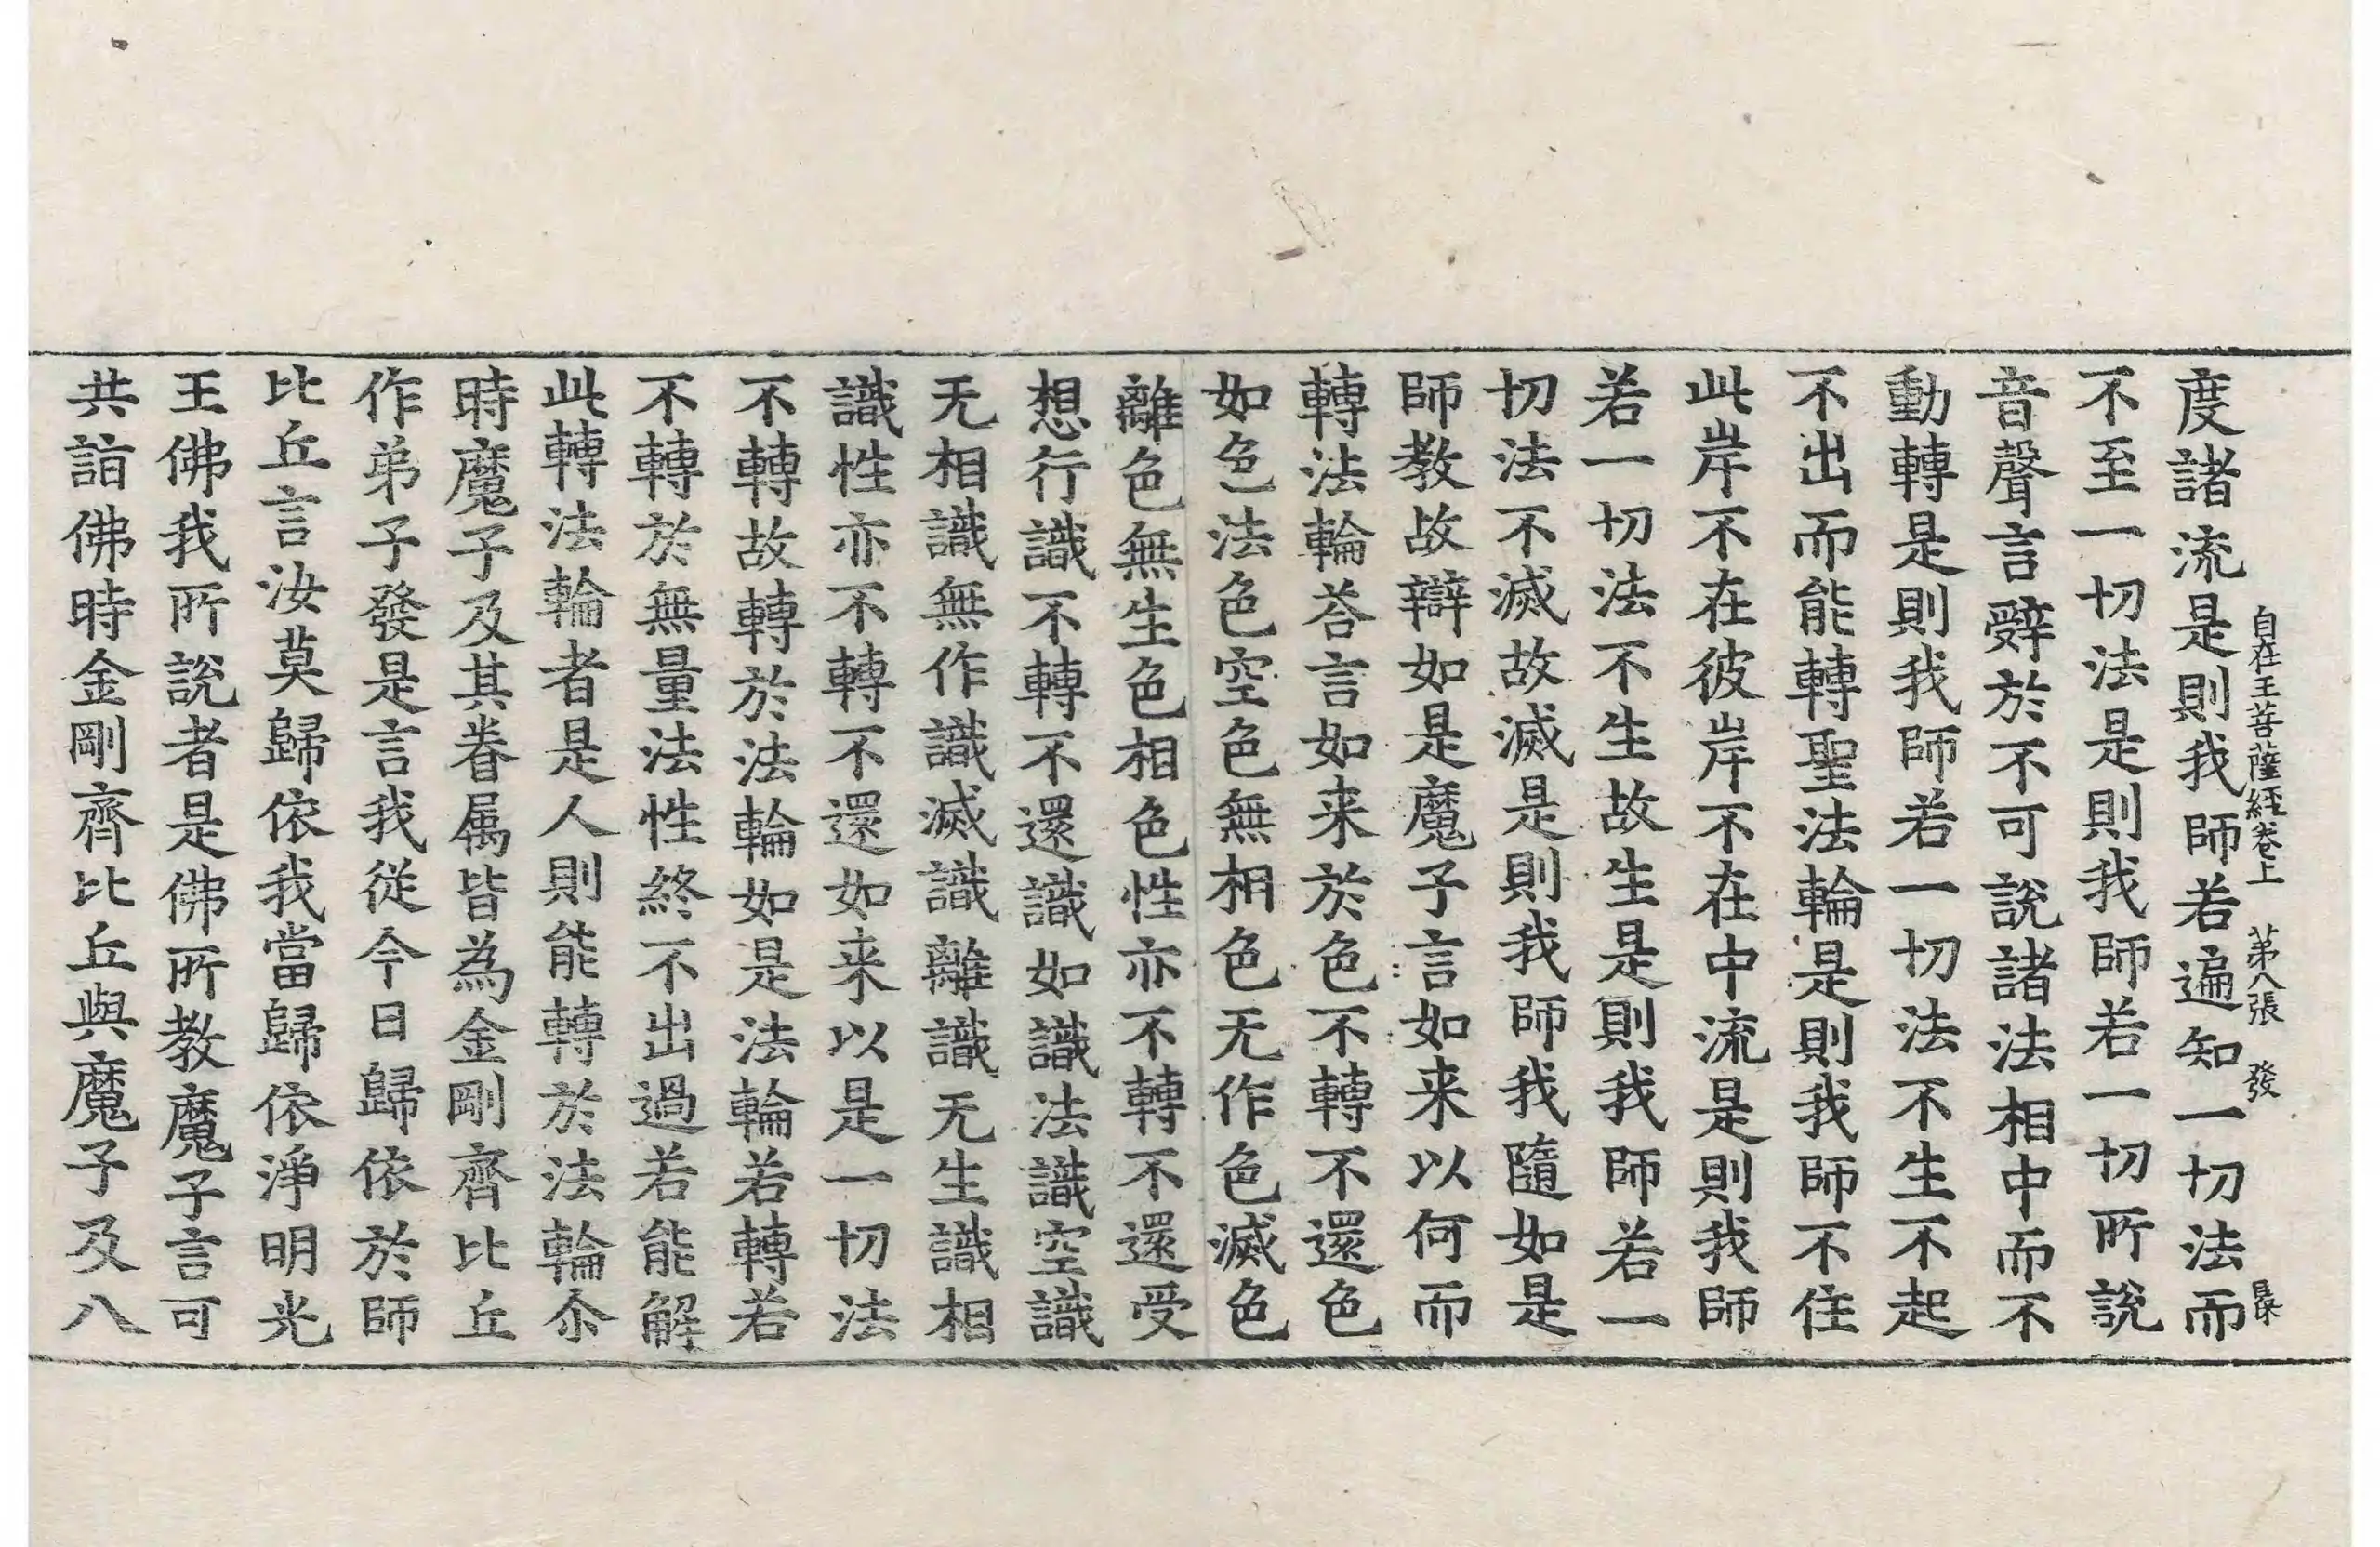 度諸流是則我師若遍知一切法而
自在王菩薩經卷上 第八張 發
不至一切法是則我師若一切所說
音聲言辭於不可說諸法相中而不
動轉是則我師若一切法不生不起
不出而能轉聖法輪是則我師不住
此岸不在彼岸不在中流是則我師
若一切法不生故生是則我師若一
切法不滅故滅是則我師我隨如是
師教故辯如是魔子言如来以何而
轉法輪荅言如来於色不轉不還色
如色法色空色無相色无作色滅色
離色無生色相色性亦不轉不還受
想行識不轉不還識如識法識空識
无相識無作識滅識離識无生識相
識性亦不轉不還如来以是一切法
不轉故轉於法輪如是法輪若轉若
不轉於無量法性終不出過若能解
此轉法輪者是人則能轉於法輪尒
時魔子及其眷属皆為金剛齊比丘
作弟子發是言我從今日歸依於師
比丘言汝莫歸依我當歸依淨明光
王佛我所說者是佛所教魔子言可
共詣佛時金剛齊比丘與魔子及八